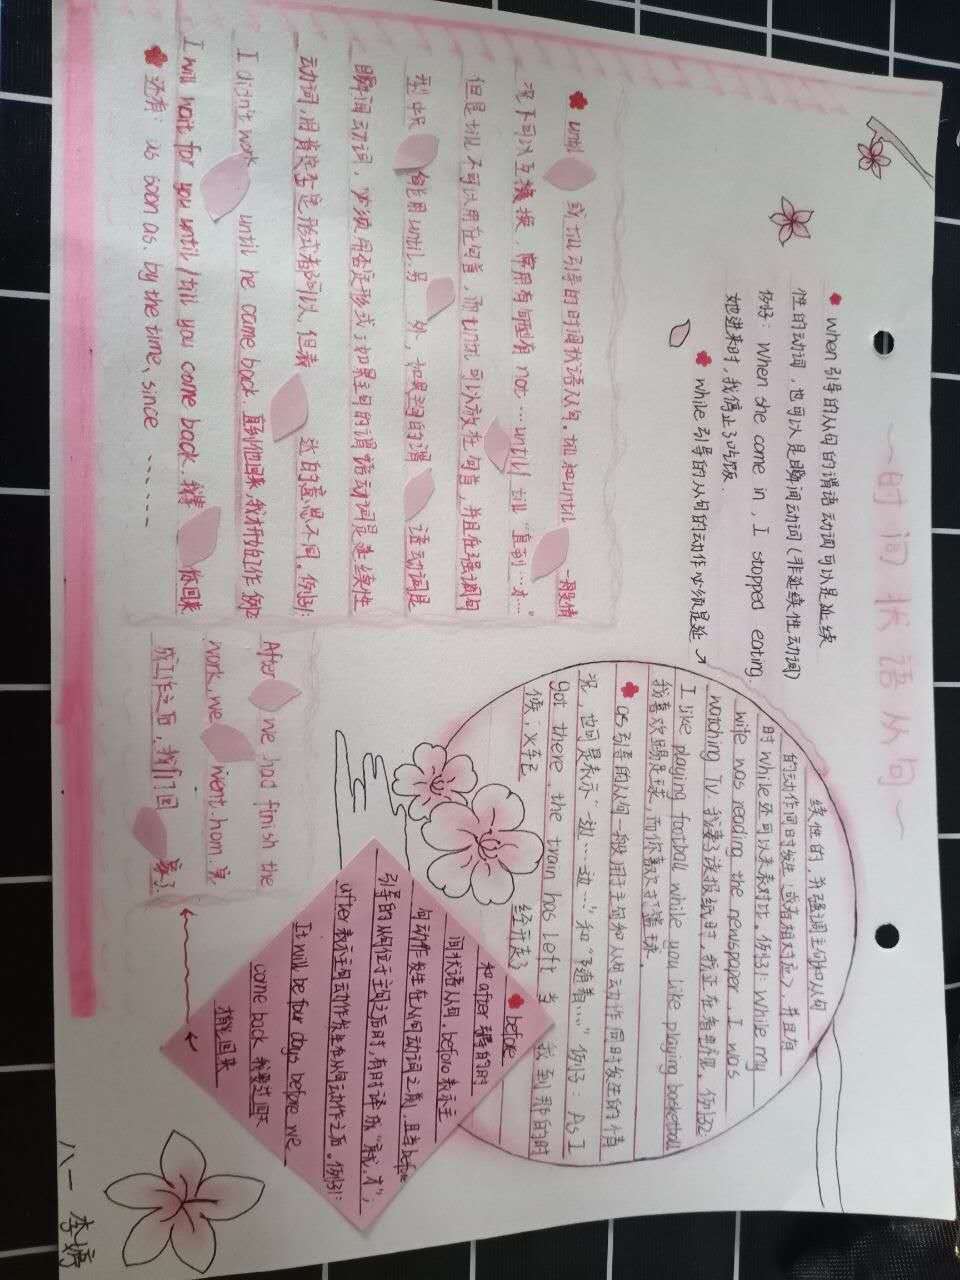 ~时间状语从句~
when引导的从句的谓语动词可以是延续
性的动词,也可以是瞬间动词(非延续性动词)
例如: When she came in, I stopped eating.
她进来时,我停止了吃饭.
while引导的从句的动作必须是延
续性的,并强调主句和从句
的动作同时发生(或者相对应),并且有
时while还可以表对比。例句1: While my
wife was reading the newspaper. I was
watching TV. 我妻子读报纸时,我正在看电视. 例句2:
I like playing football while you like playing basketball
我喜欢踢足球,而你喜欢打篮球.
as引导的从句一般用于主句和从句动作同时发生的情
况,也可是表示"一边……一边…"和"随着…" 例如: As I
got there, the train has left 当 我到那的时
候,火车已 经开走了
before
和after引导的时
间状语从句. before表示主
句动作发生在从句动词之前, 且当before
引导的从句位于主句之后时,有时译成"就,才";
after表示主句动作发生在从句动作之后。例句1:
It will be four days before we
come back 我要过四天
才能回来
until 或till引导的时间状语从句。till和until 一般情
况下可以互换, 常用句型有 not…until/till "直到…才…。
但是till不可以用在句首,而until可以放在句首,并且在强调句
型中只 能用until.另 外,如果主句的谓 语动词是
瞬间动词,必须用否定形式;如果主句的谓语动词是延续性
动词,用肯定否定形式都可以,但表 达的意思不同。例句1:
I didn't work until he came back. 直到他回来,我才开始工作 例句2
I will wait for you until/till you come back. 我等 你回来
还有: as soon as. by the time、since ……
After we had finish the
work, we went hom.完
成工作之后,我们回 家了.
八一 李婷